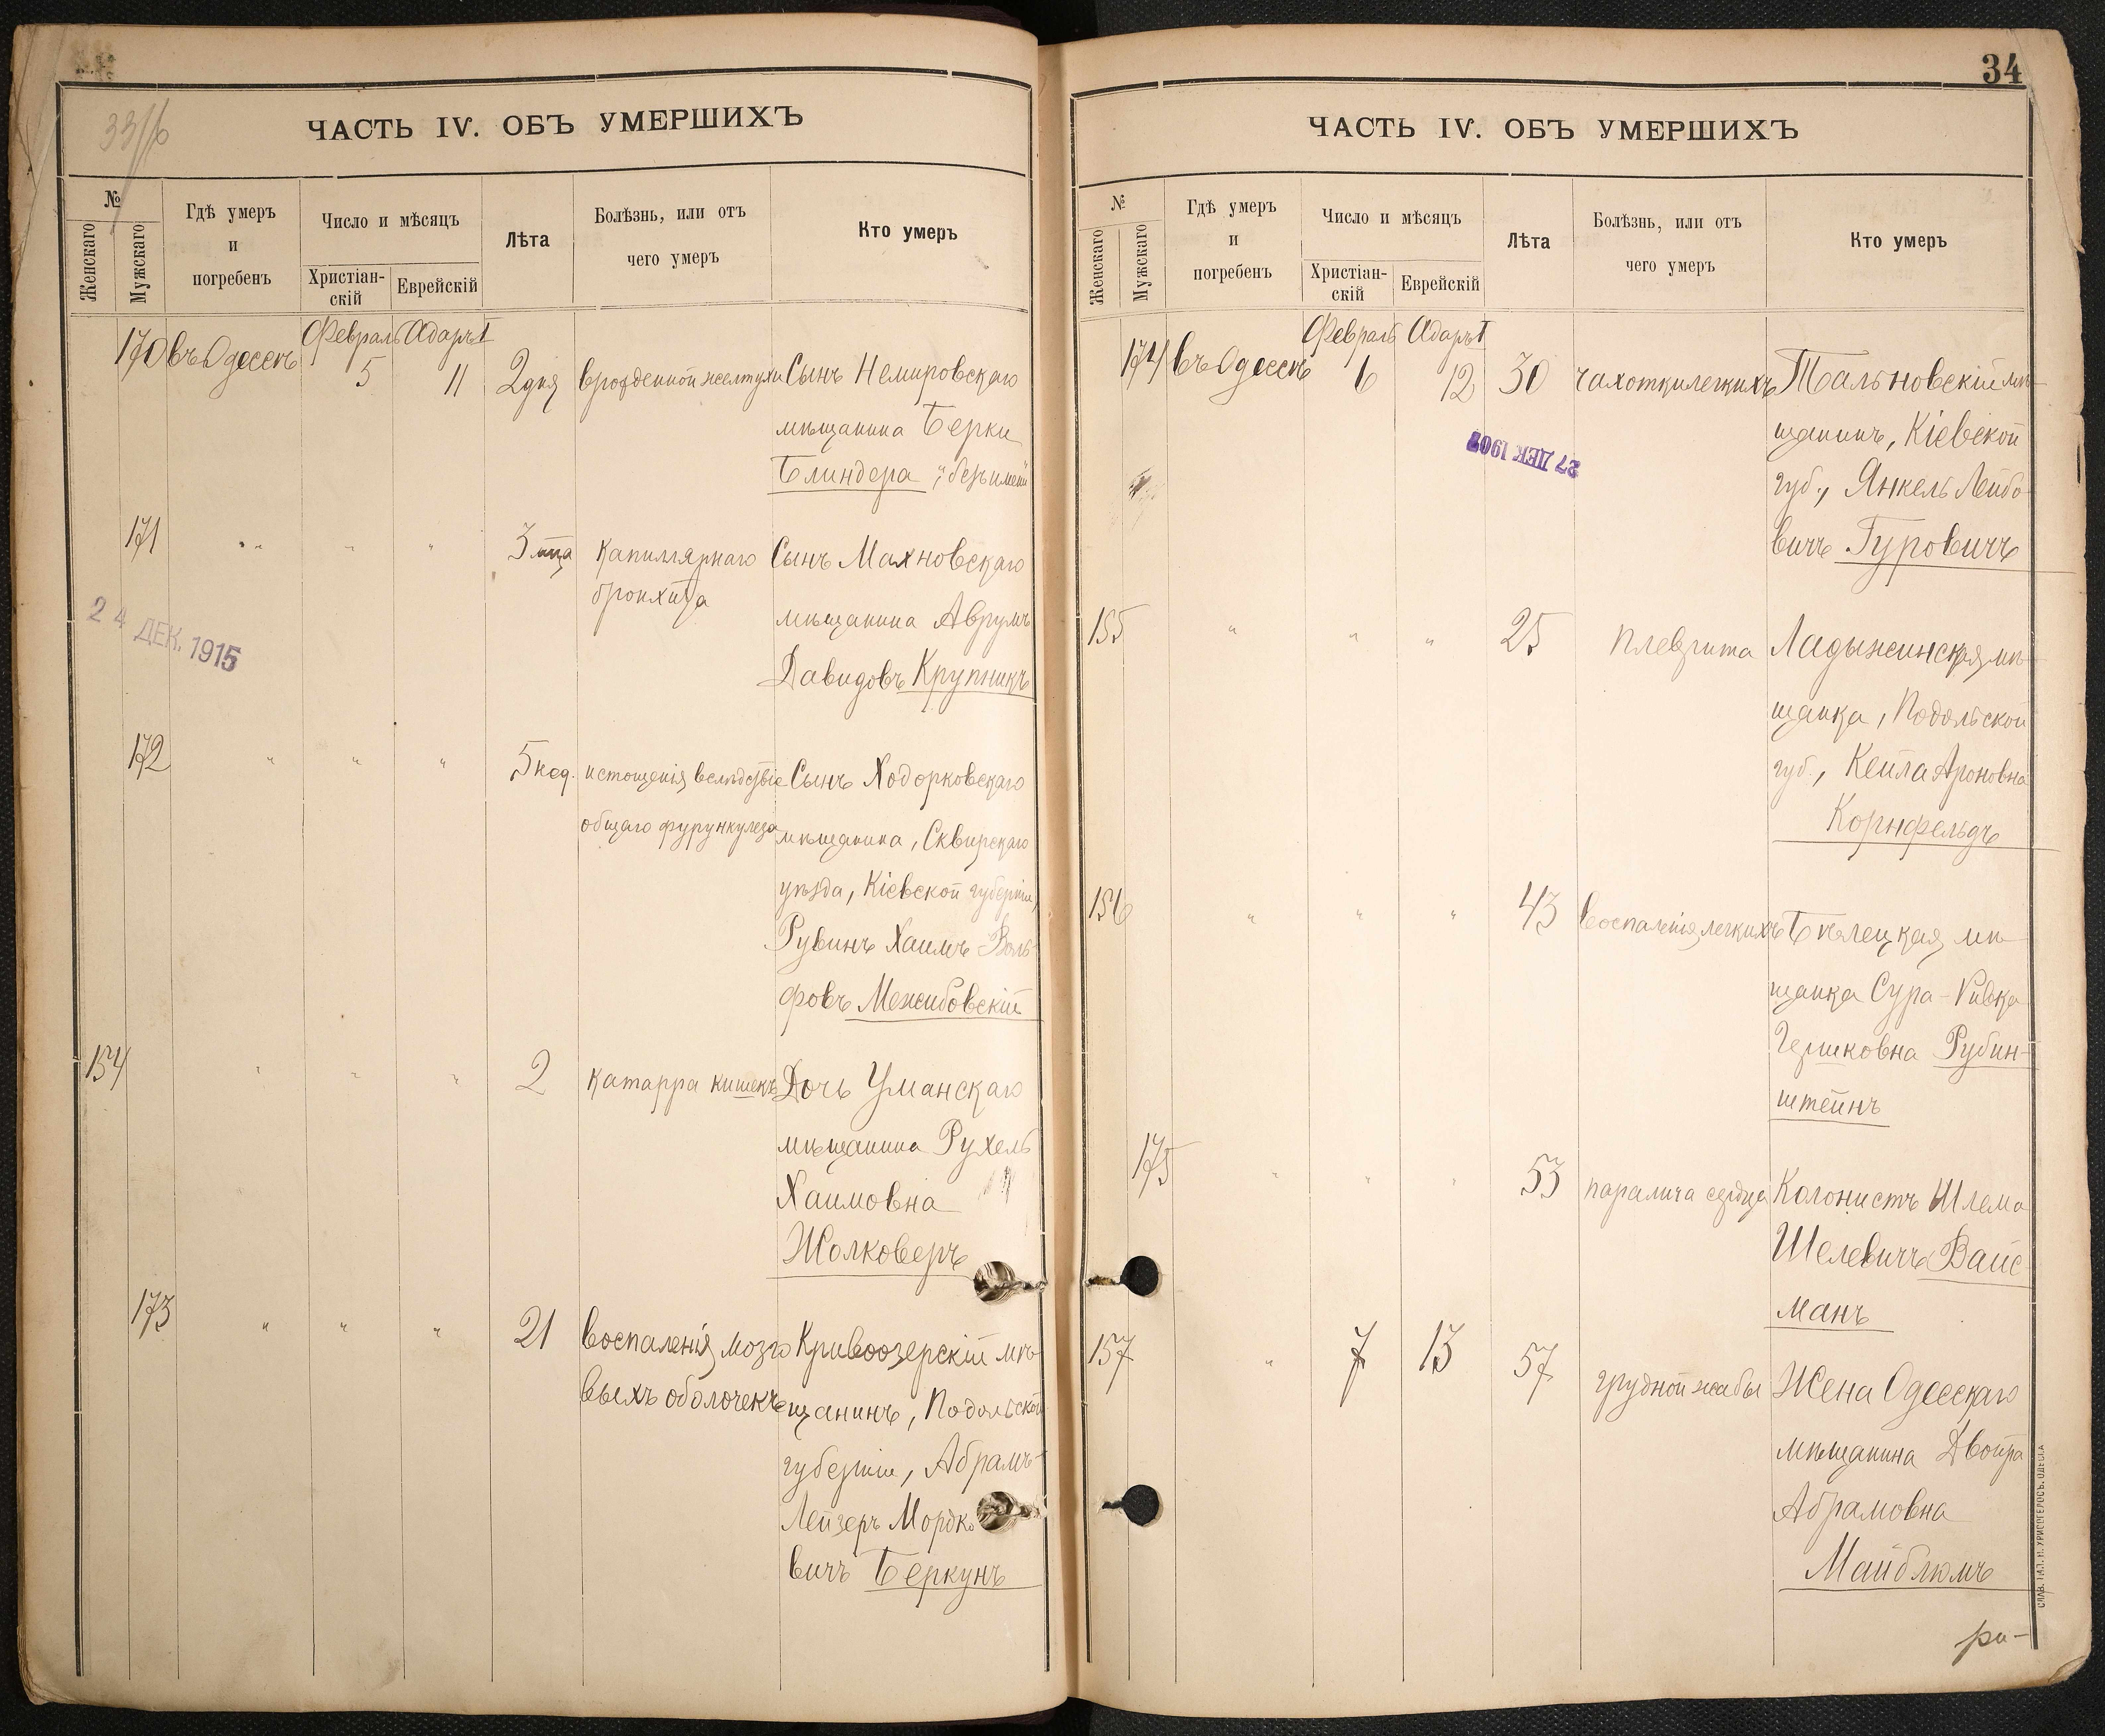 33/б
ЧАСТЬ IV. ОБЪ УМЕРШИХЪ
№
Женскаго
Мужскаго
Гдѣ умеръ
и
погребенъ
Число и мѣсяцъ
Христіан-
скій
Еврейскій
Лѣта
Болѣзнь, или отъ
чего умеръ
Кто умеръ
Февраль Адаръ I
170 въ Одессѣ 5 11 2 дня врожденной желтухи Сынъ Немировскаго
мѣщанина Берки
Блиндера, „безъ имени“
171 " " " 3 мца капиллярнаго Сынъ Махновскаго
бронхита
мѣщанина Аврумъ
Давидовъ Крупникъ
24 ДЕК. 1915
172 " " " 5 нед. истощенія вслѣдствіе Сынъ Ходорковскаго
общаго фурункулеза мѣщанина, Сквирскаго
уѣзда, Кіевской губерніи,
Рувинъ Хаимъ Воль-
фовъ Межибовскій
154 " " " 2 катарра кишекъ Дочь Уманскаго
мѣщанина Рухель
Хаимовна
Жолковеръ
173 " " " 21 воспаленія мозго Кривоозерскій мѣ-
выхъ оболочекъ щанинъ, Подольской
губерніи, Абрамъ-
Лейзеръ Мордко
вичъ Беркунъ
34
ЧАСТЬ IV. ОБЪ УМЕРШИХЪ
№
Женскаго
Мужскаго
Гдѣ умеръ
и
погребенъ
Число и мѣсяцъ
Христіан-
скій
Еврейскій
Лѣта
Болѣзнь, или отъ
чего умеръ
Кто умеръ
Февраль Адаръ I
174 въ Одессѣ 6 12 30 чахотки легкихъ Тальновскій мѣ-
щанинъ, Кіевской
27 ДЕК 1907
губ., Янкель Лейбо-
вичъ Гуровичъ
155 " " " 25 плеврита Ладыжинская мѣ-
щанка, Подольской
губ., Кейла Ароновна
Корнфельдъ
156 " " " 43 воспаленія легкихъ Бѣлецкая мѣ-
щанка Сура-Ривка
Гершковна Рубин-
штейнъ
175 " " " 53 паралича сердца Колонистъ Шлема
Шелевичъ Вайс-
манъ
157 " 7 13 57 грудной жабы Жена Одесскаго
мѣщанина Двойра
Абрамовна
Майблюмъ
ри-